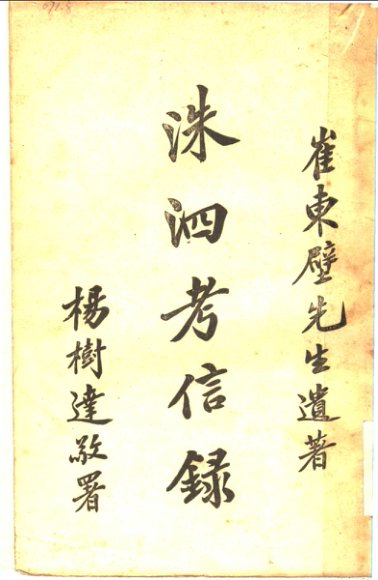 崔東壁先生遺著
洙泗考信録
楊樹達敬署